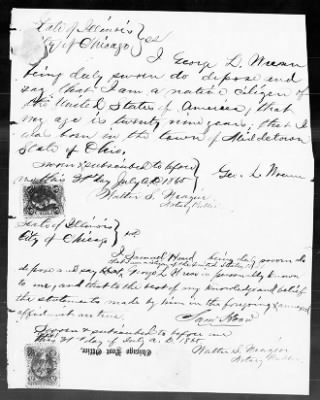 State of Illinois }
City of Chicago } ss
I George L.
being duly sworn do depose and
say, that I am a native citizen of
the United States of America; that
my age is twenty nine years; that I
was born in the town of Middletown
State of Ohio.
Sworn & subscribed to before
me this 3d day July A.D. 1865
Geo. L.
Walter S.
Notary Public
State of Illinois }
City of Chicago } ss
I Samuel being duly sworn do
depose and say that George L. is personally known
to me, and that to the best of my knowledge and belief
the statements made by him in the foregoing & annexed
affidavit are true.
Sworn & subscribed to before me
this 3d day of July A.D. 1865
Chicago Post Office.
Walter S.
Notary Public